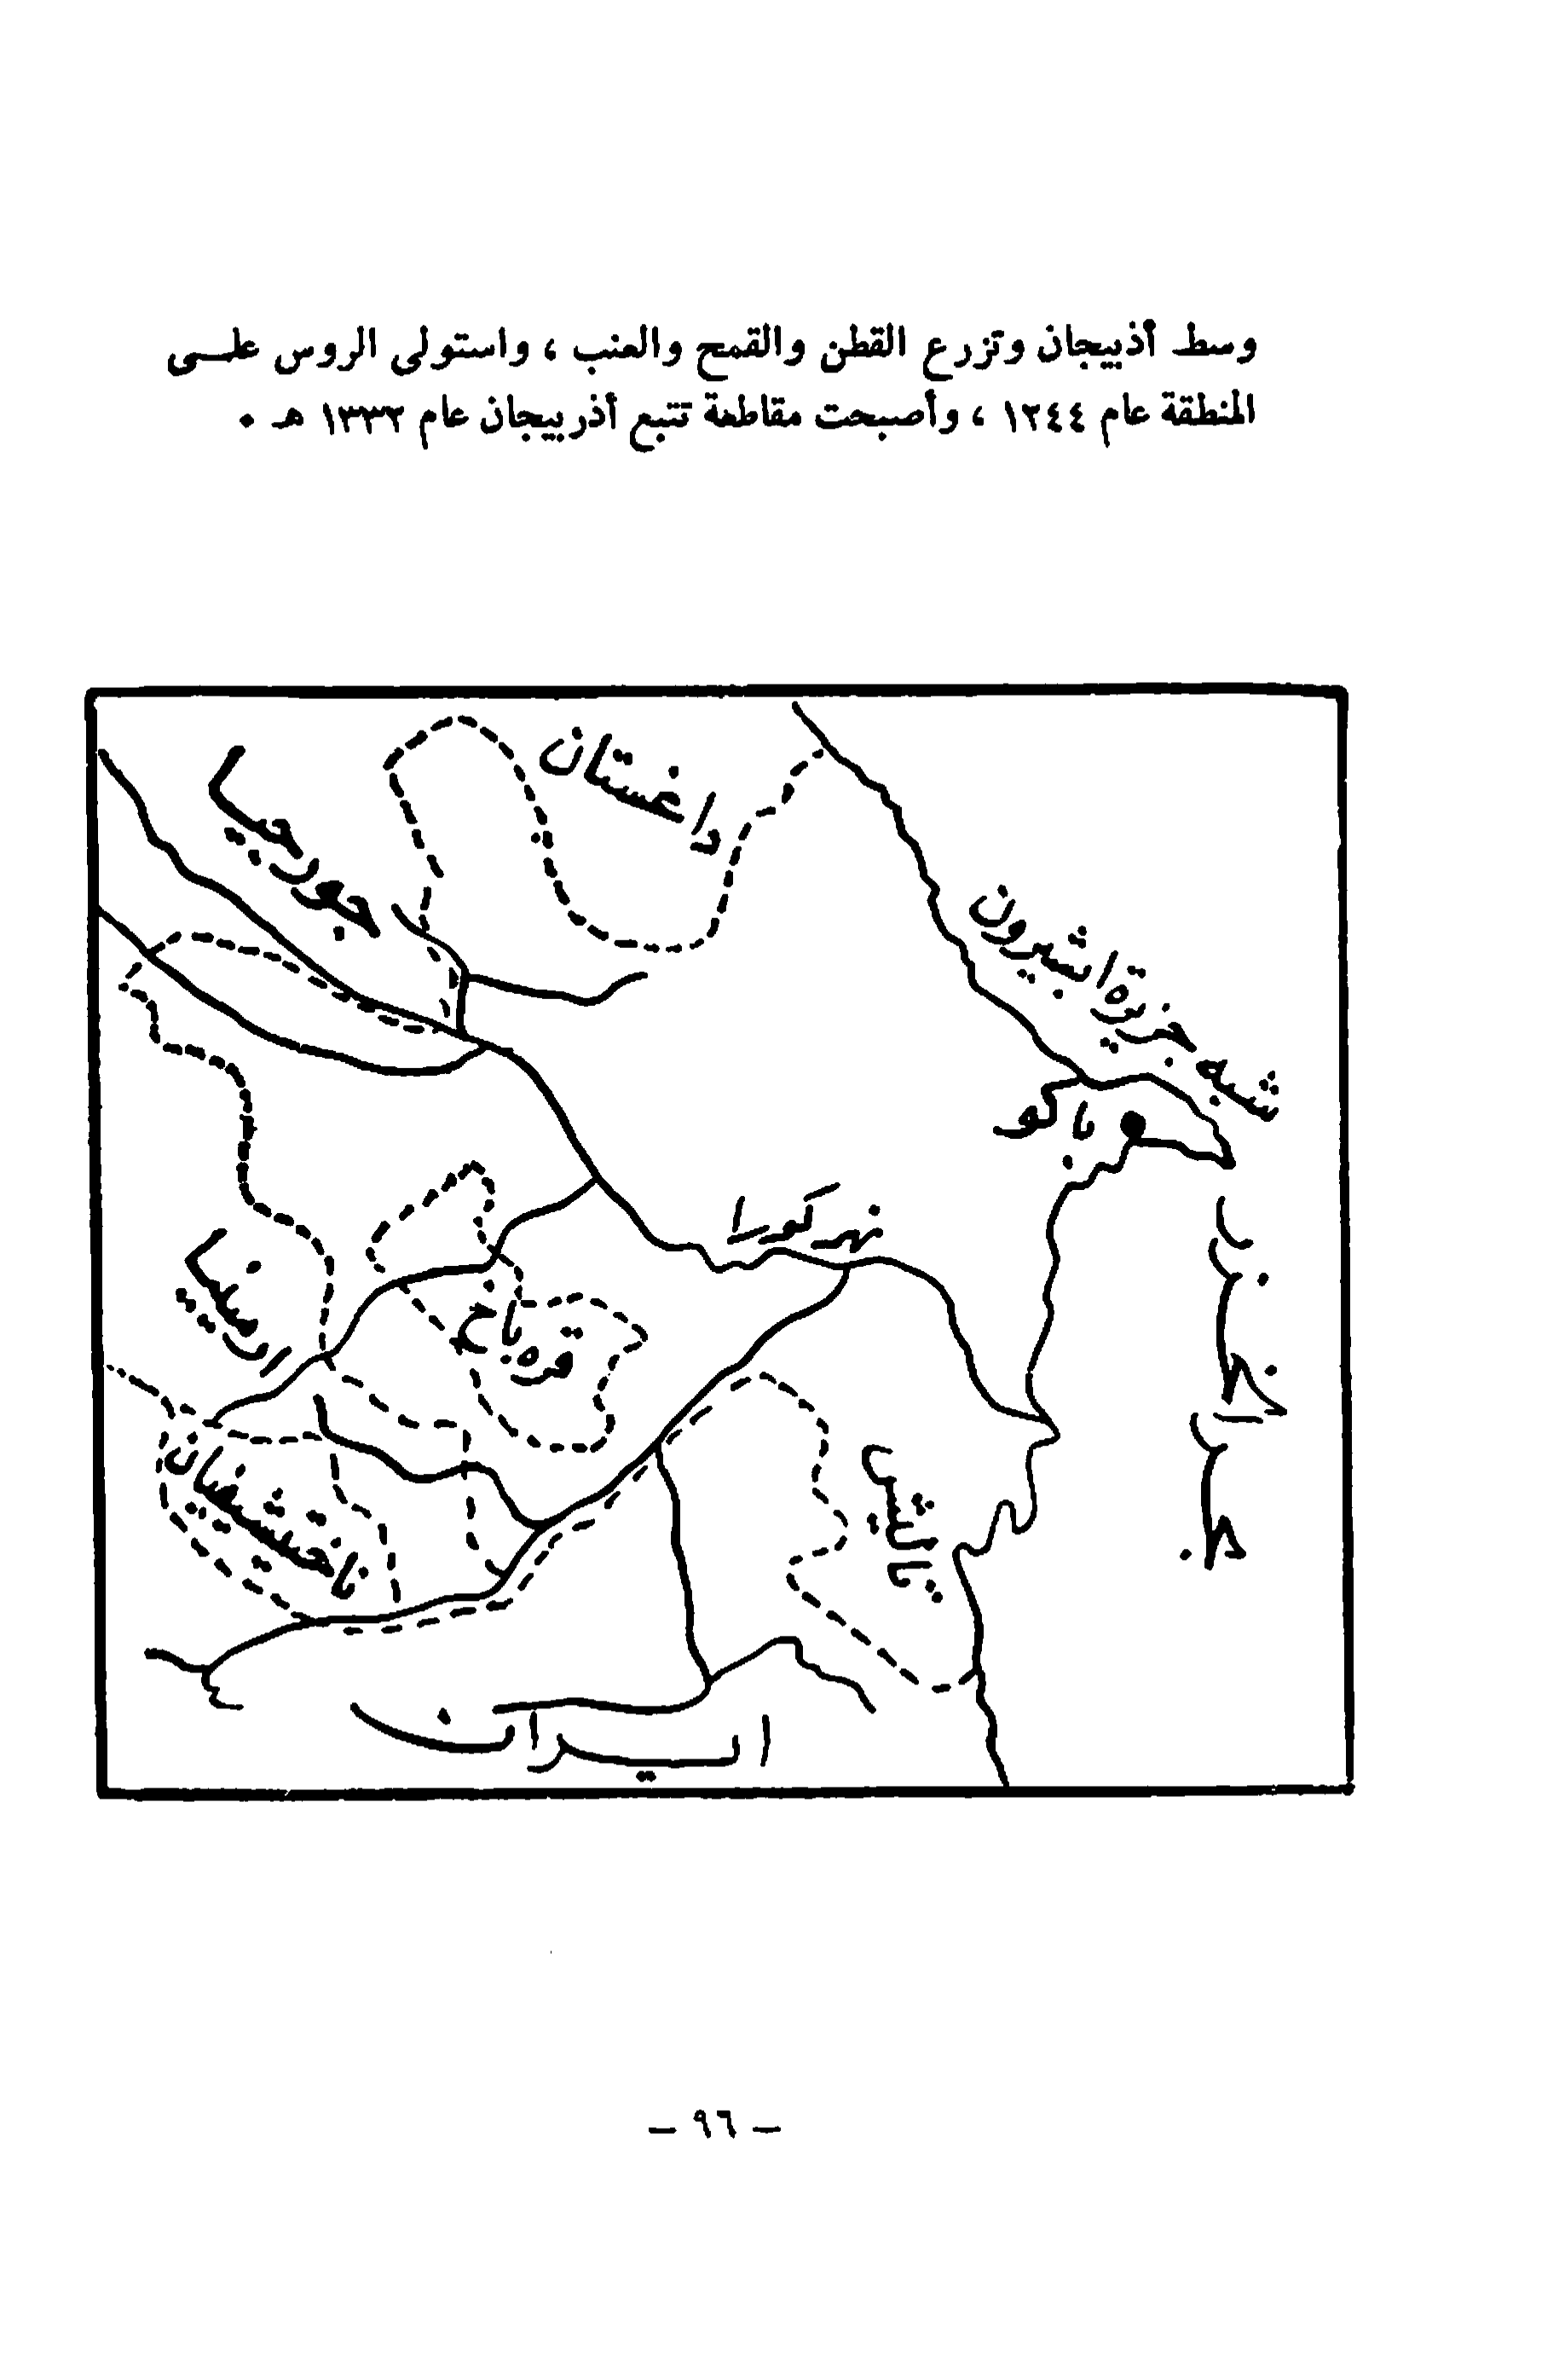 وسط أذبيجان وتزرع القطن والقمح والعنب ، واستولى الروس علـــى
المنطقة عام ١٢٤٤ ، وأصبحت مقاطعة تتبع أذربيجان عام ١٣٣٣ هـ ٠
داغستان
جورجيا
شبه جزيرة ابشيرون
باكو
نهر كورا
بحر خزر
أرمينيا
قره باخ
ناخيتشيفان
تاليش
ايران
— ٩٦ —